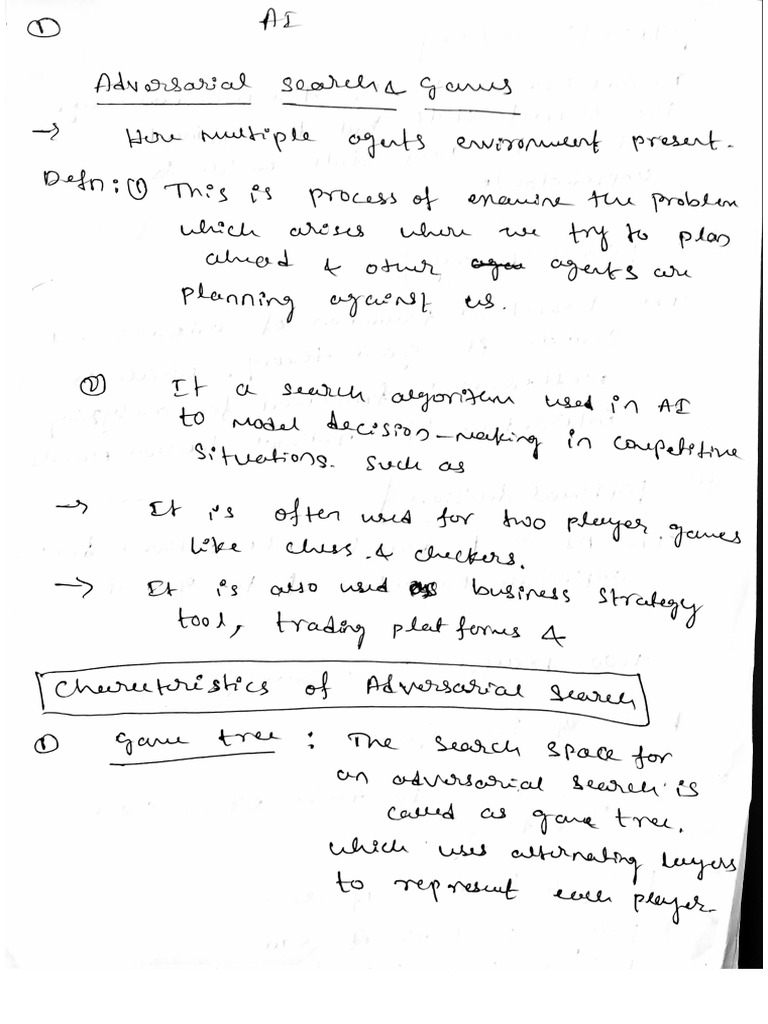 ① AI
Adversarial search & Games
→ Here multiple agents environment present.
Defn: ① This is process of examine the problem
which arises when we try to plan
ahead & other agents are
planning against us.
② It a search algorithm used in AI
to model decision-making in competitive
situations. Such as
→ It is often used for two player games
like chess & checkers.
→ It is also used as business strategy
tool, trading platforms &
Characteristics of Adversarial Search
① Game tree : The search space for
an adversarial search is
called as game tree.
which uses alternating layers
to represent each player.